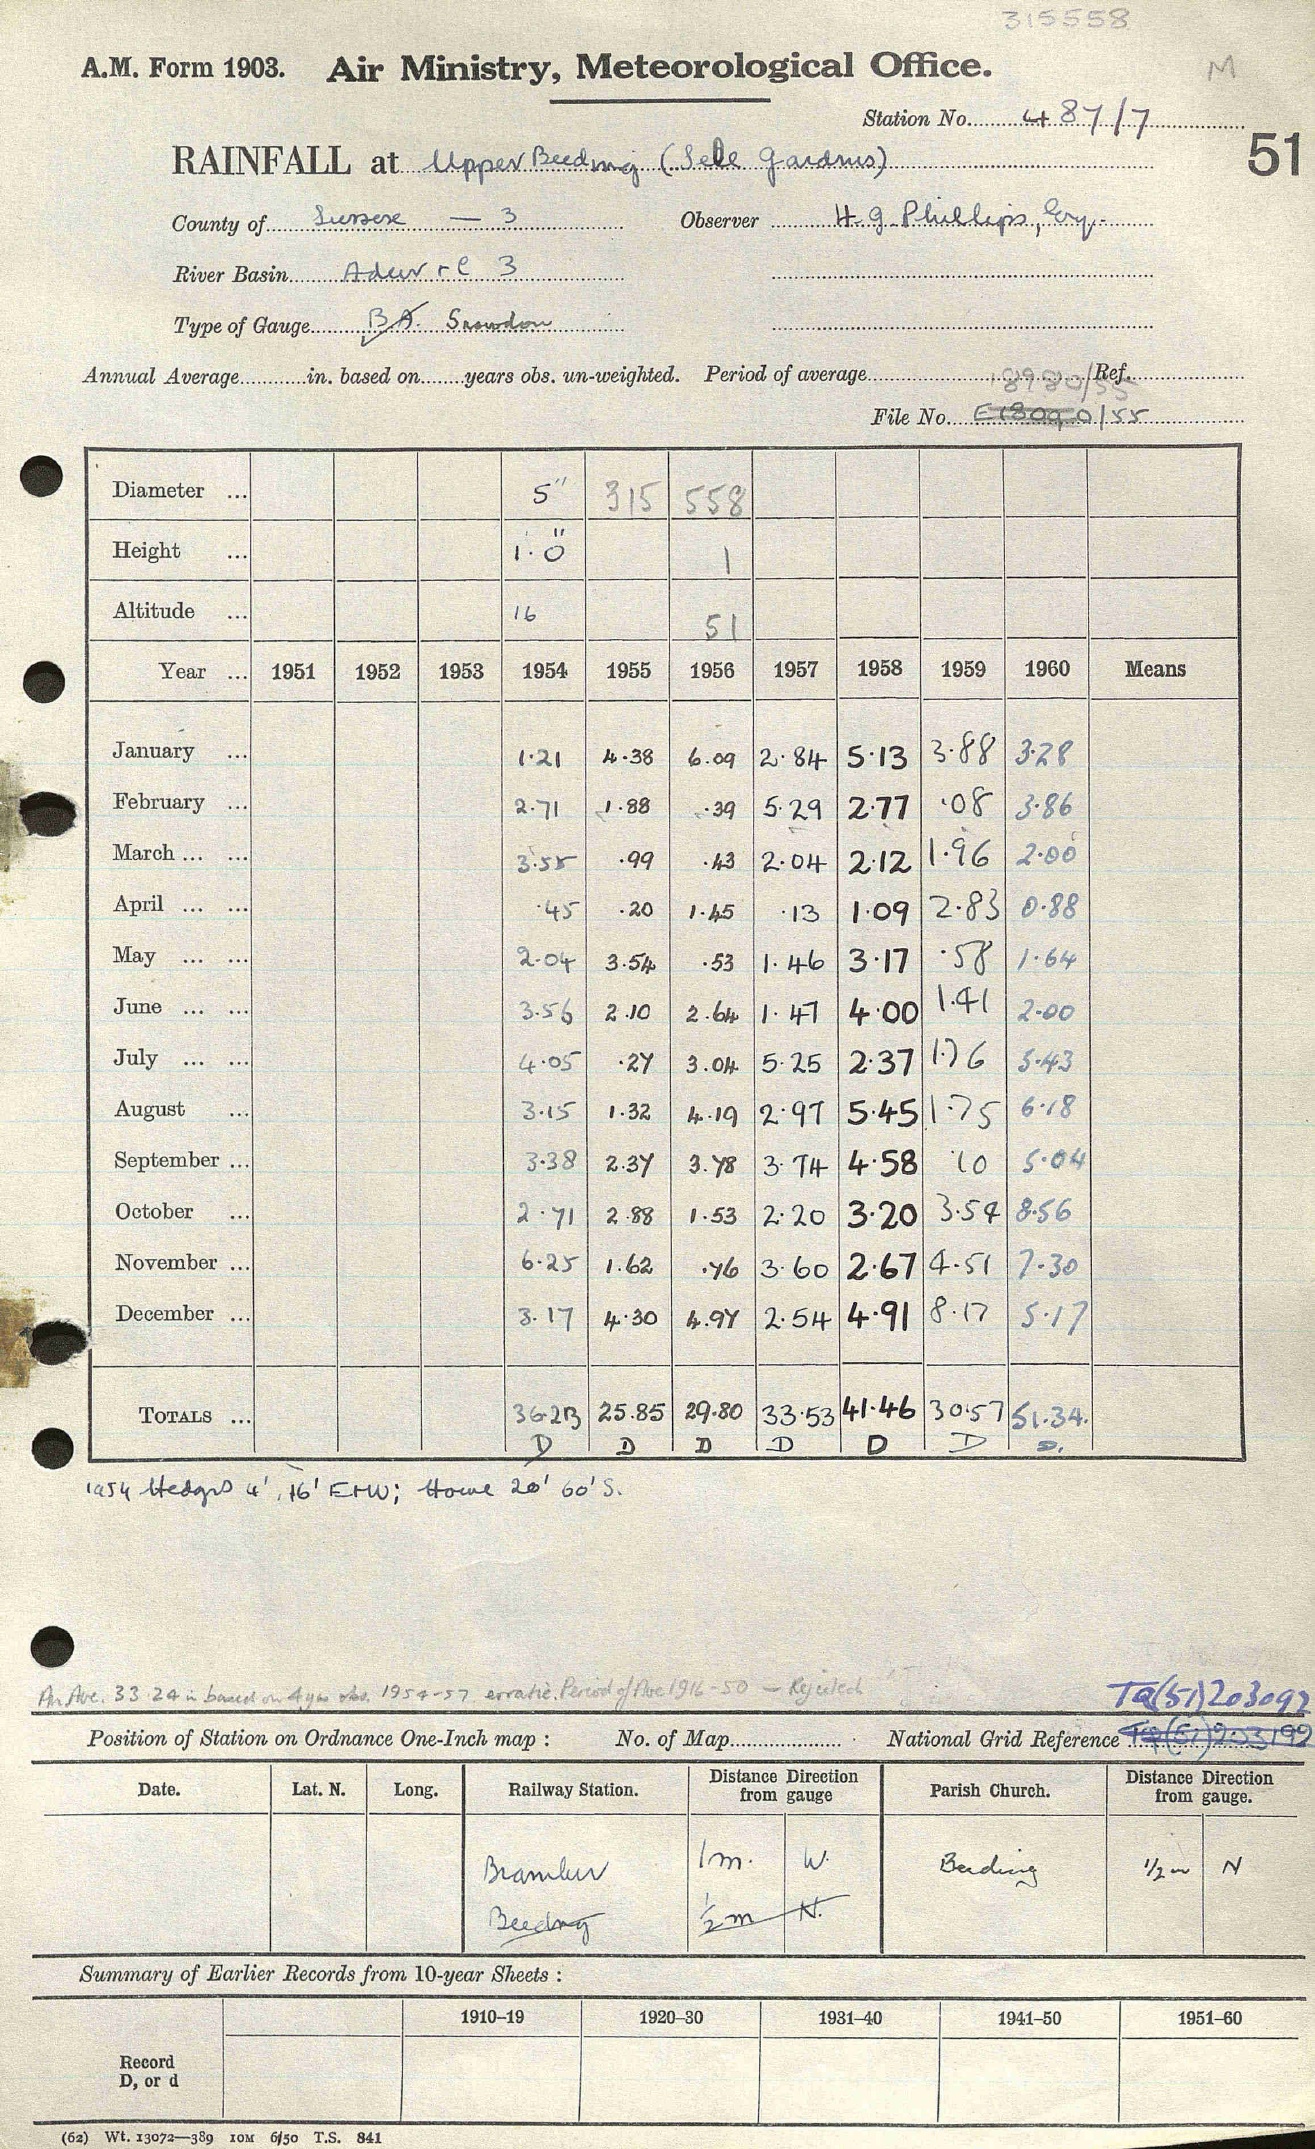 315558
A.M. Form 1903. Air Ministry, Meteorological Office. M
Station No. 487/7
51
RAINFALL at Upper Beeding (Sele Gardens)
County of Sussex — 3 Observer H. G. Phillips, Esq.
River Basin Adur + C 3
Type of Gauge B.A. Snowdon
Annual Average in. based on years obs. un-weighted. Period of average Ref.
18980/55
File No. /55
Diameter ... 5" 315 558
Height ... 1·0" 1
Altitude ... 16 51
Year ... 1951 1952 1953 1954 1955 1956 1957 1958 1959 1960 Means
January ... 1·21 4·38 6·09 2·84 5·13 3·88 3·28
February ... 2·71 1·88 ·39 5·29 2·77 ·08 3·86
March ... ... 3·55 ·99 ·43 2·04 2·12 1·96 2·00
April ... ... ·45 ·20 1·45 ·13 1·09 2·83 0·88
May ... ... 2·04 3·54 ·53 1·46 3·17 ·58 1·64
June ... ... 3·56 2·10 2·64 1·47 4·00 1·41 2·00
July ... ... 4·05 ·27 3·04 5·25 2·37 1·76 5·43
August ... 3·15 1·32 4·19 2·97 5·45 1·75 6·18
September ... 3·38 2·37 3·78 3·74 4·58 ·10 5·04
October ... 2·71 2·88 1·53 2·20 3·20 3·54 8·56
November ... 6·25 1·62 ·76 3·60 2·67 4·51 7·30
December ... 3·17 4·30 4·97 2·54 4·91 8·17 5·17
TOTALS ... 36·23 25·85 29·80 33·53 41·46 30·57 51·34.
D D D D D D D.
1954 Hedges 4', 16' E+W; House 20' 60' S.
An Ave. 33·24 in based on 4 yrs obs. 1954-57 erratic. Period of Ave 1916-50 — Rejected
TQ(51)203092
Position of Station on Ordnance One-Inch map : No. of Map National Grid Reference TQ(51)203199
Date. Lat. N. Long. Railway Station. Distance from gauge Direction Parish Church. Distance from gauge. Direction
Bramber 1m. W. Beeding 1/2 m N
Beeding 1/2 m N.
Summary of Earlier Records from 10-year Sheets :
1910–19 1920–30 1931–40 1941–50 1951–60
Record
D, or d
(62) Wt. 13072—389 10M 6/50 T.S. 841